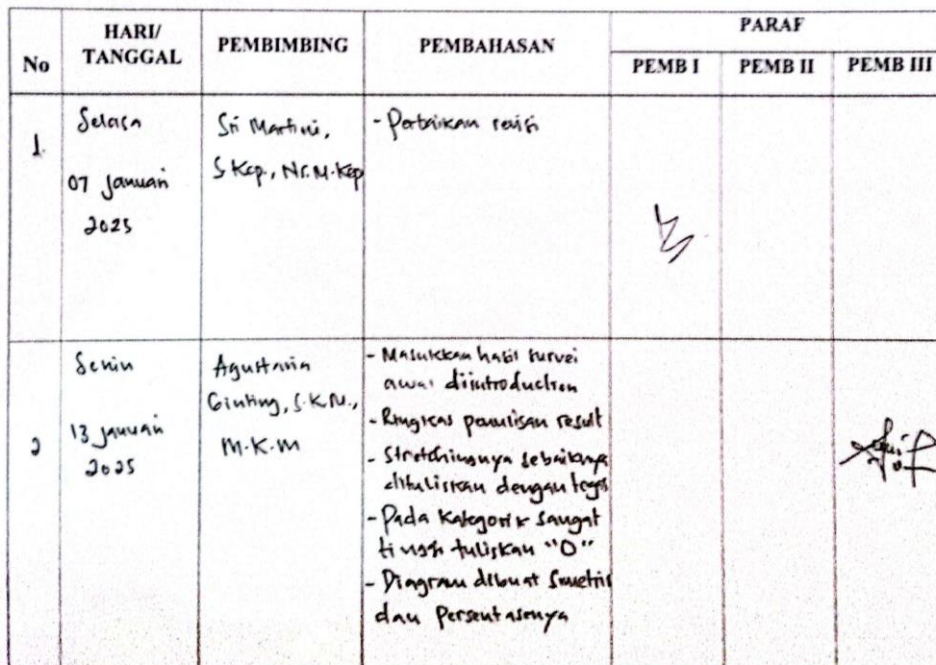 No HARI/ TANGGAL PEMBIMBING PEMBAHASAN PARAF
PEMB I PEMB II PEMB III
1 Selasa
07 Januari
2025
Sri Martini,
S Kep., Nr.M.Kep
- Perbaikan revisi
2 Senin
13 Januari
2025
Agustaria
Ginting, S.K.M.,
M.K.M
- Masukkan hasil survei
awal diintroduction
- Ringkas penulisan result
- Stretchingnya sebaiknya
dituliskan dengan
- Pada Kategorik sangat
tinggi tuliskan "0"
- Diagram dibuat Simetris
dan Persentasenya